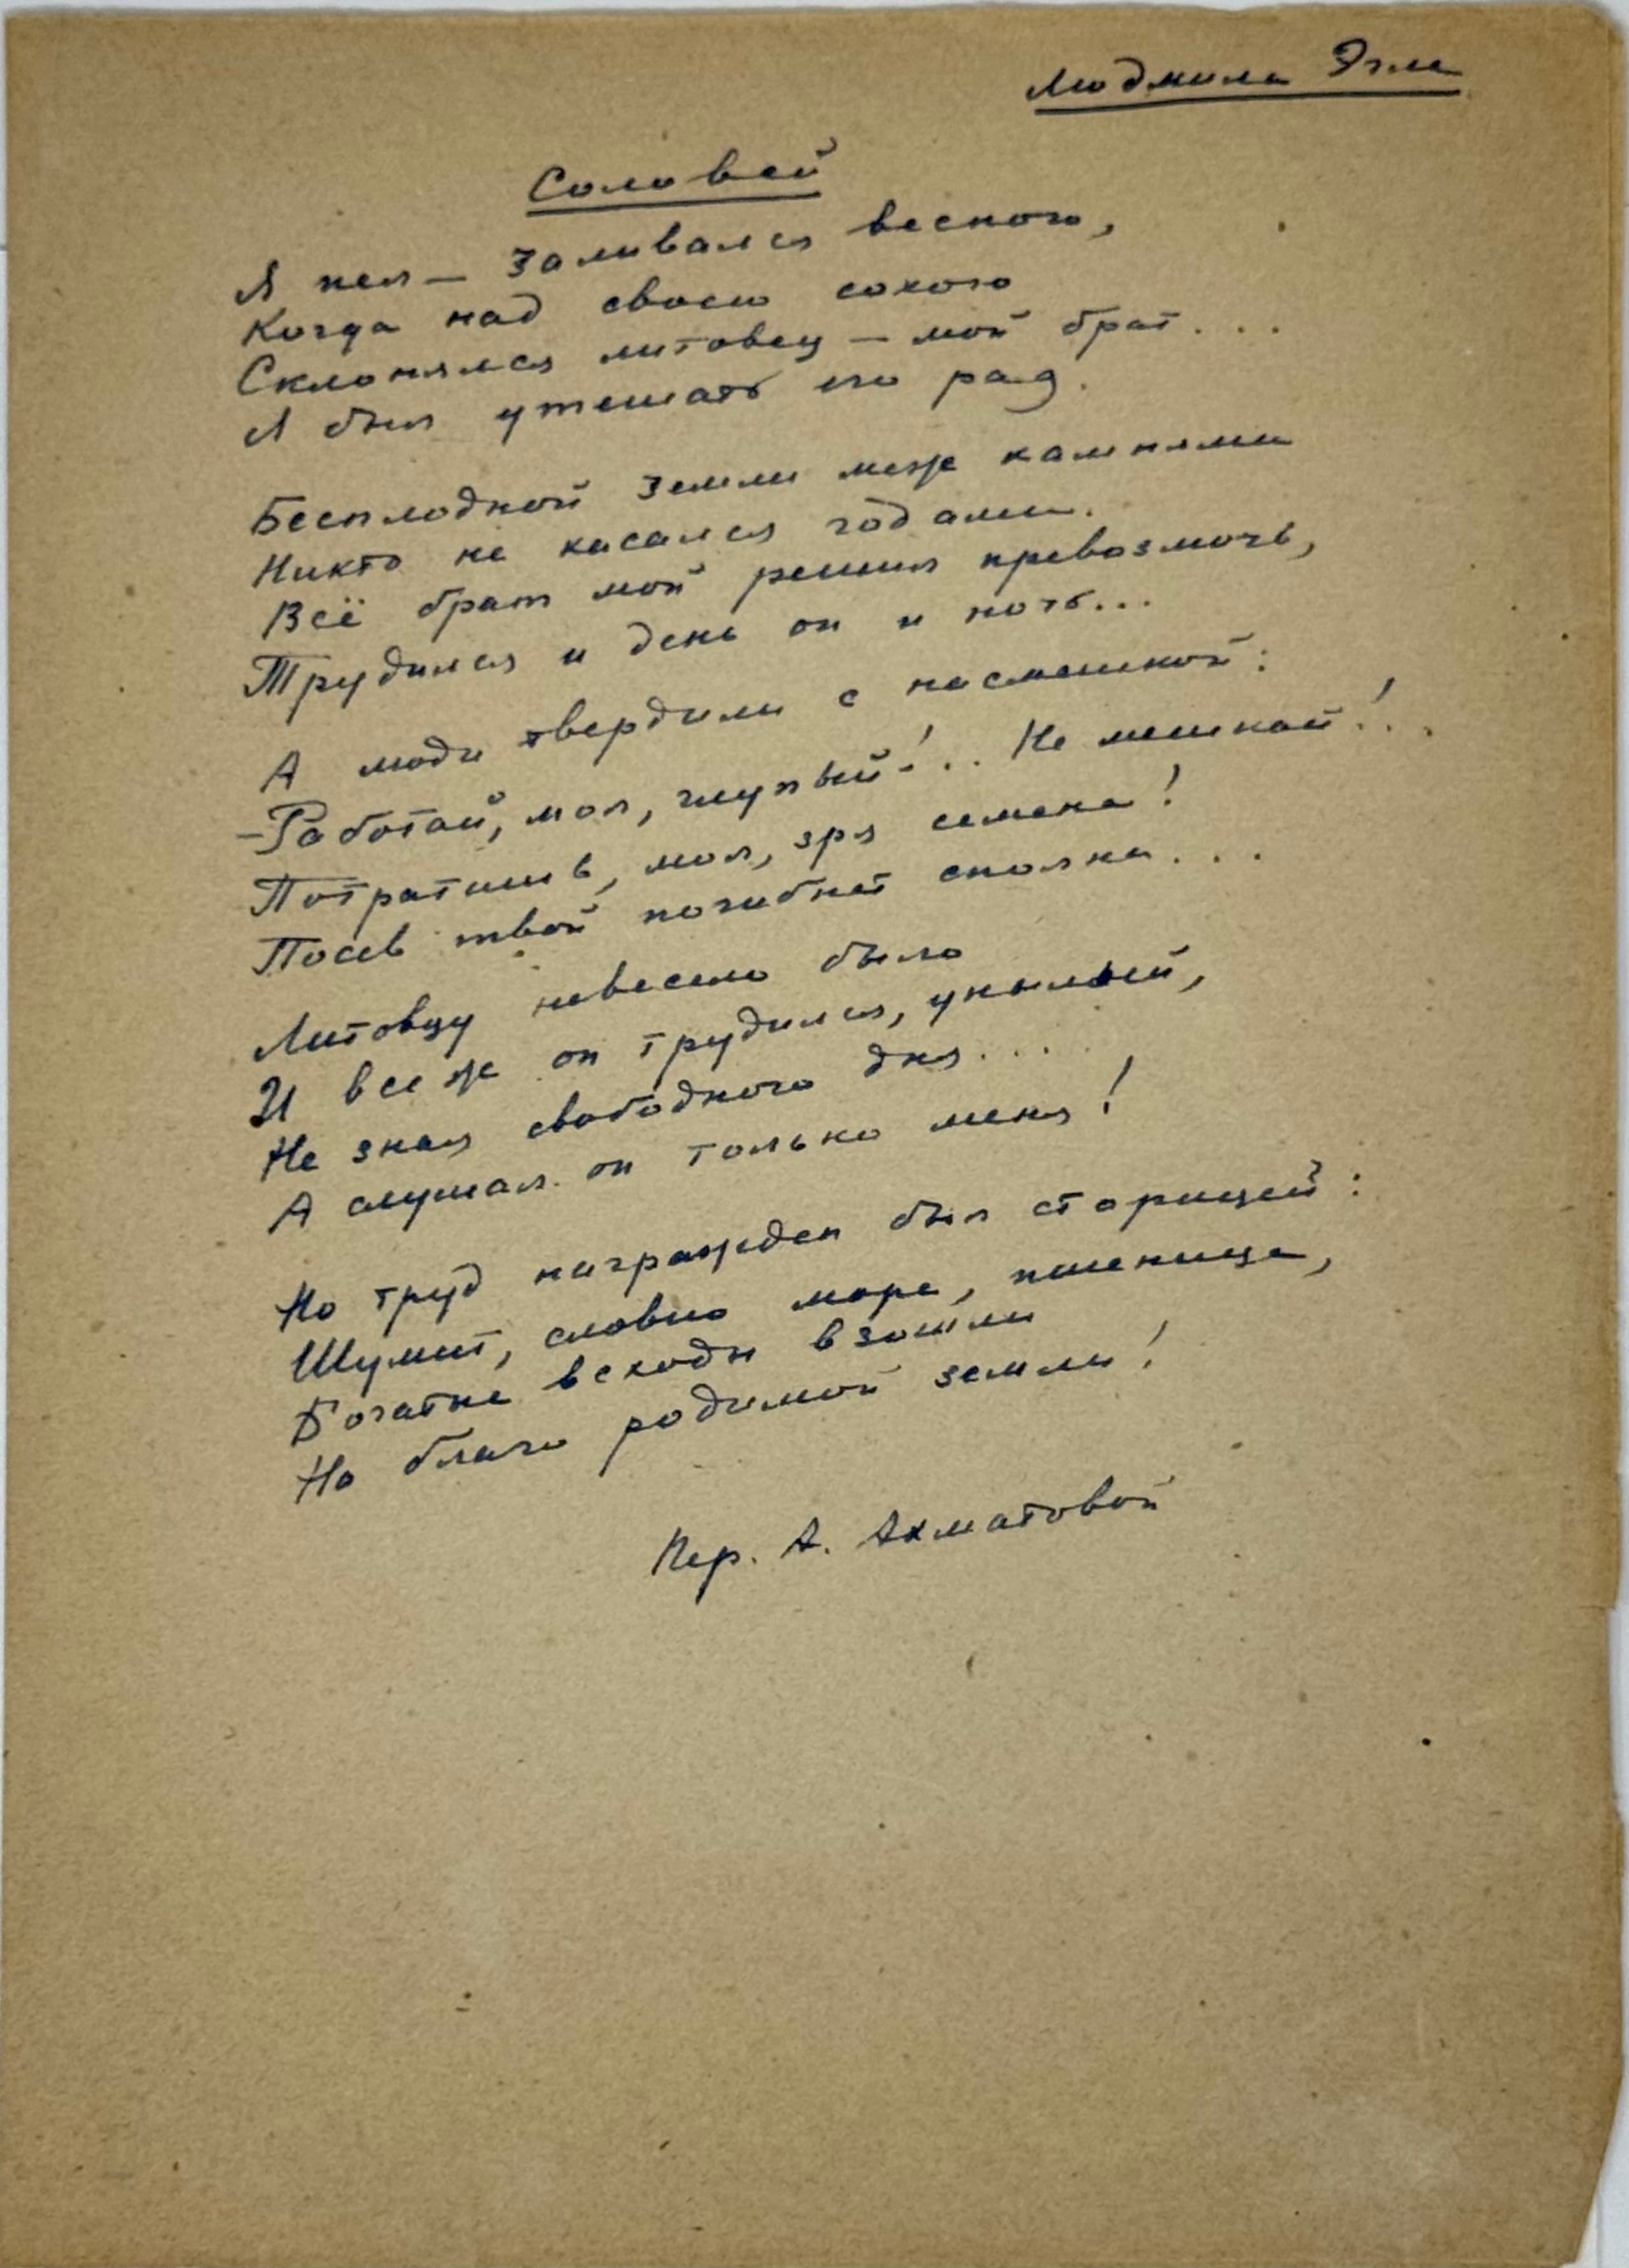 Людмила Эгле
Соловей
Я пел — заливался весною,
Когда над своею сохою
Склонялся литовец — мой брат...
Я был утешать его рад.
Бесплодной земли меж камнями
Никто не касался годами.
Всё брат мой решил превозмочь,
Трудился и день он и ночь...
А люди твердили с насмешкой:
— Работай, мол, глупый!.. Не мешкай!..
Потратишь, мол, зря семена!
Посев твой погибнет сполна...
Литовцу невесело было
И все же он трудился, унылый,
Не зная свободного дня....
А слушал он только меня!
Но труд награжден был сторицей:
Шумит, словно море, пшеница,
Богатые всходы взошли
На благо родимой земли!
Пер. А. Ахматовой